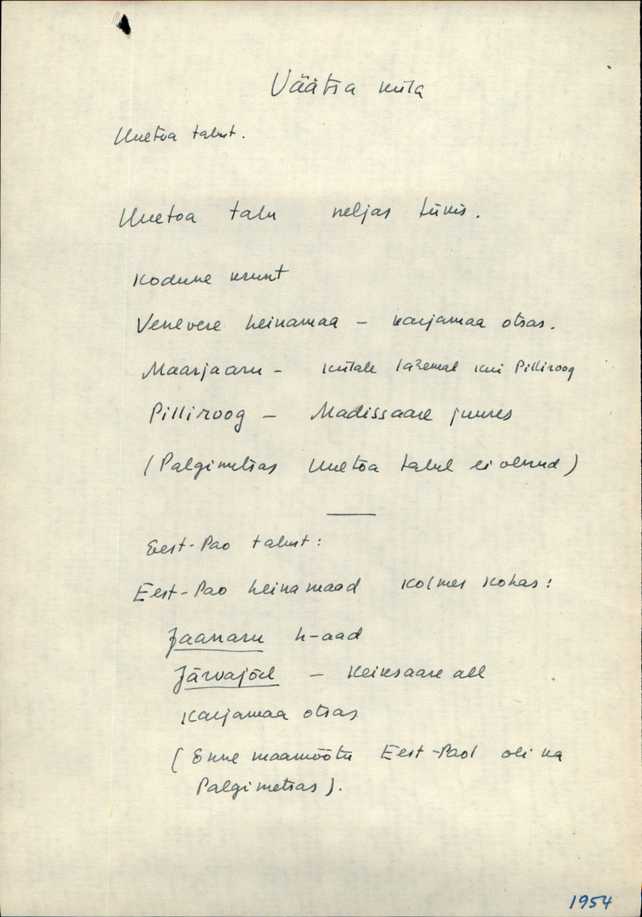 Väätsa küla
Uuetoa talust.
Uuetoa talu neljas tükis.
Kodune krunt
Venevere heinamaa – karjamaa otsas.
Maarjaaru – külale lähemal kui Pilliroog
Pilliroog – Madissaare juures
(Palgimetsas Uuetoa talul ei olnud)
Eest-Pao talust:
Eest-Pao heinamaad kolmes kohas:
Jaanaru h-aad
Järvajõel – Keiksaare all
Karjamaa otsas
(Enne maamõõtu Eest-Paol oli ka
Palgimetsas).
1954